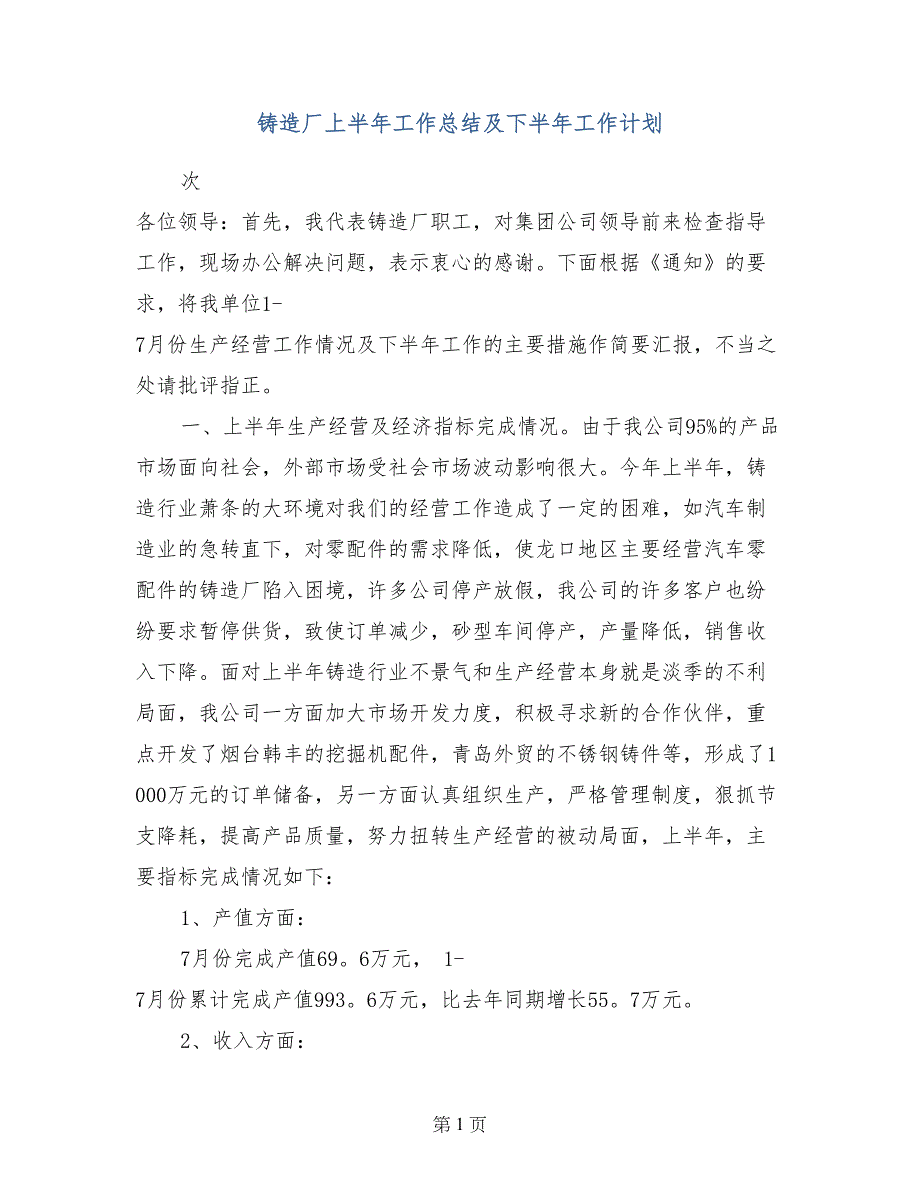 铸造厂上半年工作总结及下半年工作计划
次
各位领导：首先，我代表铸造厂职工，对集团公司领导前来检查指导
工作，现场办公解决问题，表示衷心的感谢。下面根据《通知》的要
求，将我单位1-
7月份生产经营工作情况及下半年工作的主要措施作简要汇报，不当之
处请批评指正。
一、上半年生产经营及经济指标完成情况。由于我公司95%的产品
市场面向社会，外部市场受社会市场波动影响很大。今年上半年，铸
造行业萧条的大环境对我们的经营工作造成了一定的困难，如汽车制
造业的急转直下，对零配件的需求降低，使龙口地区主要经营汽车零
配件的铸造厂陷入困境，许多公司停产放假，我公司的许多客户也纷
纷要求暂停供货，致使订单减少，砂型车间停产，产量降低，销售收
入下降。面对上半年铸造行业不景气和生产经营本身就是淡季的不利
局面，我公司一方面加大市场开发力度，积极寻求新的合作伙伴，重
点开发了烟台韩丰的挖掘机配件，青岛外贸的不锈钢铸件等，形成了1
000万元的订单储备，另一方面认真组织生产，严格管理制度，狠抓节
支降耗，提高产品质量，努力扭转生产经营的被动局面，上半年，主
要指标完成情况如下：
1、产值方面：
7月份完成产值69。6万元， 1-
7月份累计完成产值993。6万元，比去年同期增长55。7万元。
2、收入方面：
第 1 页